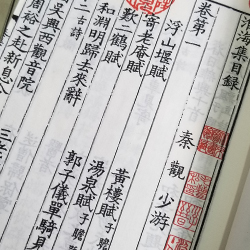 海集目録
卷第一
秦觀少游
浮山堰賦 黃樓賦
寄老庵賦 湯泉賦
歎二鶴賦 郭子儀單騎見
和淵明歸去來辭
二古詩
吳興西觀音院
周裕之赴新息